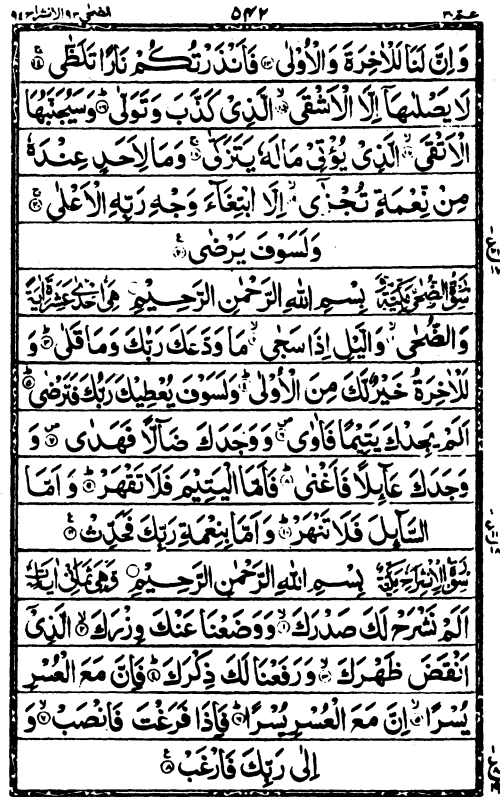 عم ٣٠ ٥٤٢ الضحى ٩٣ الانشراح ٩٤
وَاِنَّ لَنَا لَلْاٰخِرَةَ وَالْاُوْلٰى ۝١٣ فَاَنْذَرْتُكُمْ نَارًا تَلَظّٰى ۝١٤
لَا يَصْلٰىهَاۤ اِلَّا الْاَشْقَى ۝١٥ الَّذِىْ كَذَّبَ وَتَوَلّٰى ۝١٦ وَسَيُجَنَّبُهَا
الْاَتْقَى ۝١٧ الَّذِىْ يُؤْتِىْ مَالَهٗ يَتَزَكّٰى ۝١٨ وَمَا لِاَحَدٍ عِنْدَهٗ
مِنْ نِّعْمَةٍ تُجْزٰٓى ۝١٩ اِلَّا ابْتِغَآءَ وَجْهِ رَبِّهِ الْاَعْلٰى ۝٢٠
وَلَسَوْفَ يَرْضٰى ۝٢١
سُوْرَةُ الضُّحٰى مَكِّيَّةٌ بِسْمِ اللهِ الرَّحْمٰنِ الرَّحِيْمِ هِىَ اِحْدٰى عَشْرَةَ اٰيَةً
وَالضُّحٰى ۝١ وَالَّيْلِ اِذَا سَجٰى ۝٢ مَا وَدَّعَكَ رَبُّكَ وَمَا قَلٰى ۝٣ وَ
لَلْاٰخِرَةُ خَيْرٌ لَّكَ مِنَ الْاُوْلٰى ۝٤ وَلَسَوْفَ يُعْطِيْكَ رَبُّكَ فَتَرْضٰى ۝٥
اَلَمْ يَجِدْكَ يَتِيْمًا فَاٰوٰى ۝٦ وَوَجَدَكَ ضَآلًّا فَهَدٰى ۝٧ وَ
وَجَدَكَ عَآئِلًا فَاَغْنٰى ۝٨ فَاَمَّا الْيَتِيْمَ فَلَا تَقْهَرْ ۝٩ وَاَمَّا
السَّآئِلَ فَلَا تَنْهَرْ ۝١٠ وَاَمَّا بِنِعْمَةِ رَبِّكَ فَحَدِّثْ ۝١١
سُوْرَةُ الْاِنْشِرَاحِ مَكِّيَّةٌ بِسْمِ اللهِ الرَّحْمٰنِ الرَّحِيْمِ وَهِىَ ثَمَانِىْ اٰيَاتٍ
اَلَمْ نَشْرَحْ لَكَ صَدْرَكَ ۝١ وَوَضَعْنَا عَنْكَ وِزْرَكَ ۝٢ الَّذِىْۤ
اَنْقَضَ ظَهْرَكَ ۝٣ وَرَفَعْنَا لَكَ ذِكْرَكَ ۝٤ فَاِنَّ مَعَ الْعُسْرِ
يُسْرًا ۝٥ اِنَّ مَعَ الْعُسْرِ يُسْرًا ۝٦ فَاِذَا فَرَغْتَ فَانْصَبْ ۝٧ وَ
اِلٰى رَبِّكَ فَارْغَبْ ۝٨